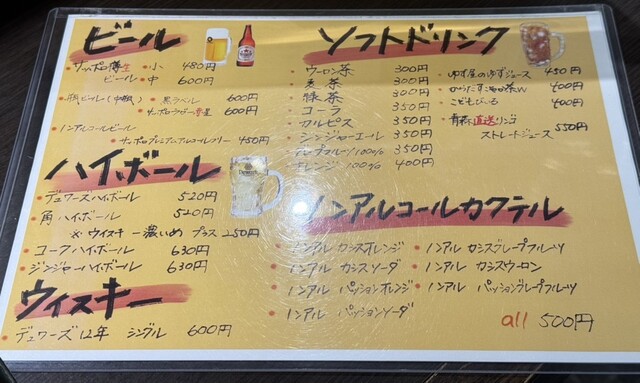 ビール
・サッポロ樽生 ・小 480円
ビール ・中 600円
・瓶ビール(中瓶) ・黒ラベル 600円
・サッポロラガー赤星 600円
・ノンアルコールビール
サッポロプレミアムアルコールフリー 450円
ハイボール
・デュワーズハイボール 520円
・角ハイボール 520円
※ウイスキー濃いめ プラス 250円
・コークハイボール 630円
・ジンジャーハイボール 630円
ウィスキー
・デュワーズ 12年 シングル 600円
ソフトドリンク
・ウーロン茶 300円
・麦茶 300円
・緑茶 300円
・コーラ 350円
・カルピス 350円
・ジンジャーエール 350円
100% 350円
・オレンジ 100% 400円
・ゆず屋のゆずジュース 450円
400円
・こどもびいる 400円
・青森直送リンゴ
ストレートジュース 550円
ノンアルコールカクテル
・ノンアル カシスオレンジ ・ノンアル カシスグレープフルーツ
・ノンアル カシスソーダ ・ノンアル カシスウーロン
・ノンアル パッションオレンジ ・ノンアル パッショングレープフルーツ
・ノンアル パッションソーダ
all 500円